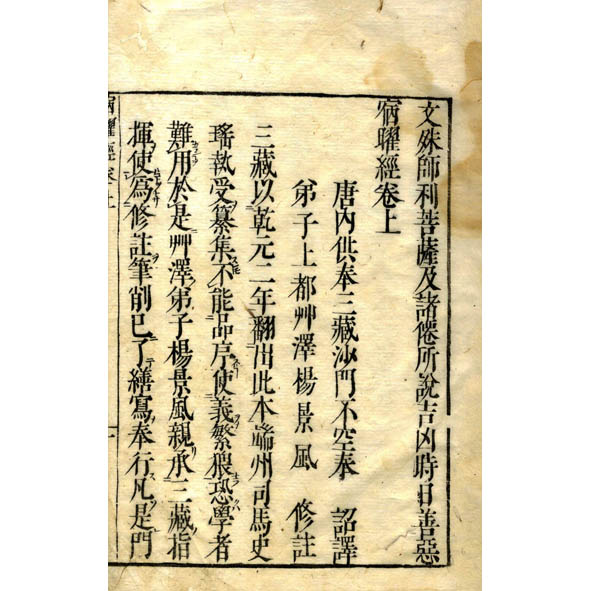 文殊師利菩薩及諸僊所說吉凶時日善惡
宿曜經卷上
唐內供奉三藏沙門不空奉　詔譯
弟子上都艸澤楊景風　修註
三藏以乾元二年翻出此本端州司馬史
瑤執受纂集不能品序使義繁猥恐學者
難用於是艸澤弟子楊景風親承三藏指
揮使為修註筆削已了繕寫奉行凡是門
宿曜經卷上
一